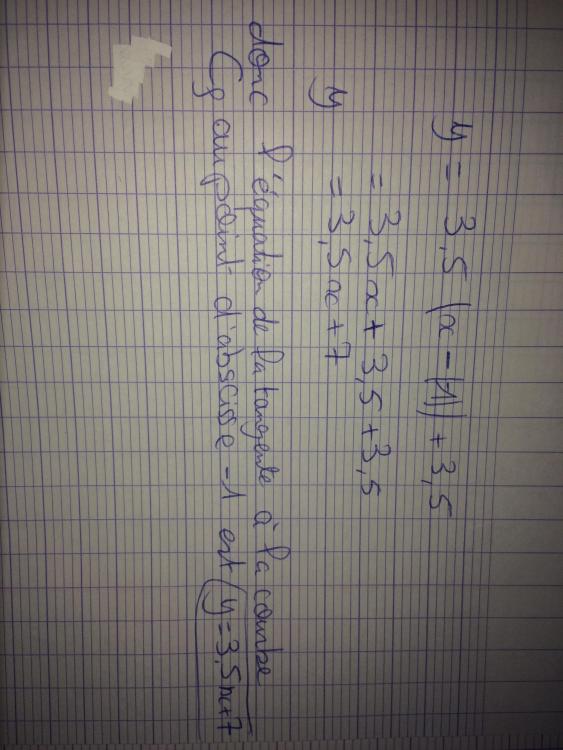 y = 3,5 (x - (-1)) + 3,5
= 3,5x + 3,5 + 3,5
y = 3,5x + 7
donc l'équation de la tangente à la courbe
Cf au point d'abscisse -1 est y = 3,5x+7